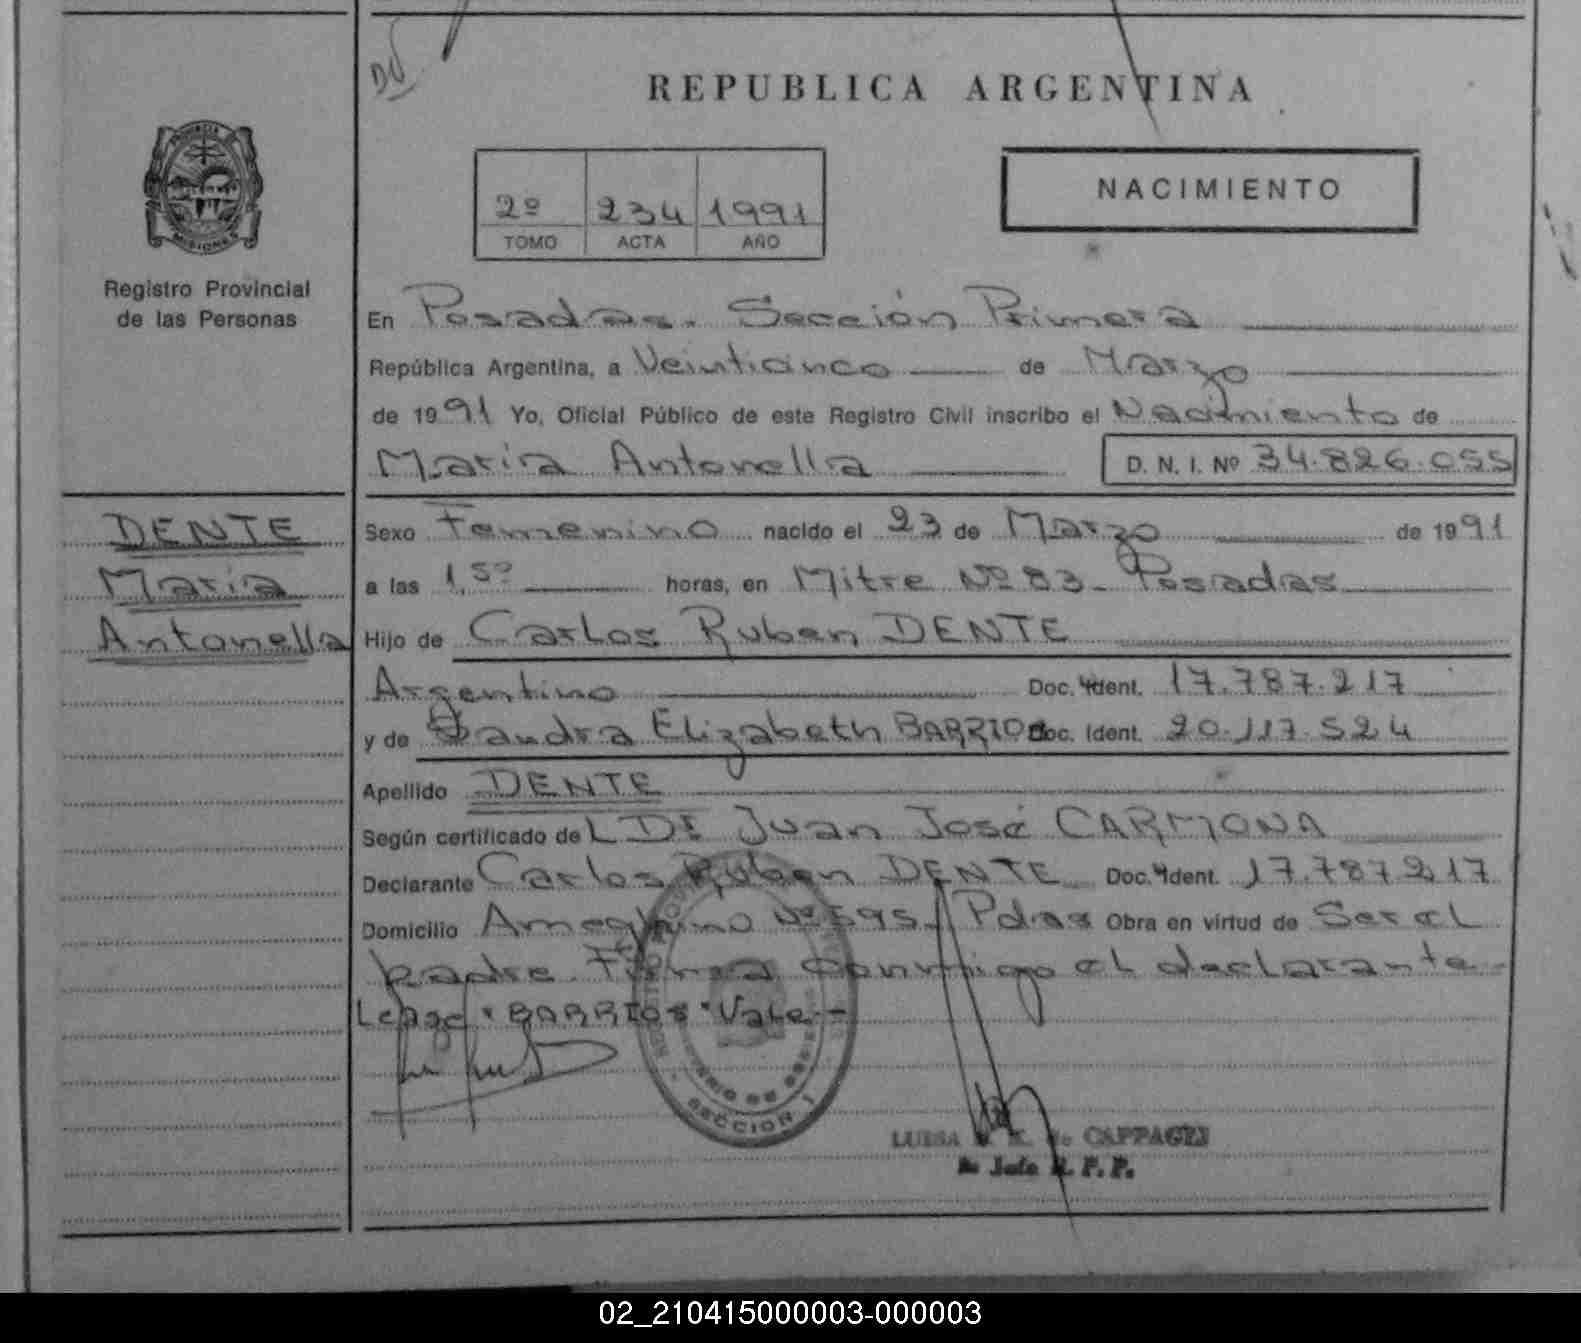 DV
REPUBLICA ARGENTINA
PROVINCIA
MISIONES
Registro Provincial
de las Personas
2º 234 1991
TOMO ACTA AÑO
NACIMIENTO
En Posadas. Sección Primera
República Argentina, a Veinticinco de Marzo
de 1991 Yo, Oficial Público de este Registro Civil inscribo el Nacimiento de
María Antonella D. N. I. Nº 34.826.055
DENTE
María
Antonella
Sexo Femenino nacido el 23 de Marzo de 1991
a las 1,50 horas, en Mitre Nº 83 - Posadas
Hijo de Carlos Ruben DENTE
Argentino Doc. Ident. 17.787.217
y de Sandra Elizabeth BARRIOS Doc. Ident. 20.117.524
Apellido DENTE
Según certificado deL Dr Juan José CARMONA
Declarante Carlos Ruben DENTE Doc. Ident. 17.787.217
Domicilio Ameghino Nº 595 - Pdas Obra en virtud de Ser el
padre. Firma conmigo el declarante -
Leáse "BARRIOS" Vale -
SECCION 1
LUISA de CAPPAGLI
Jefe R. P. P.
02_210415000003-000003